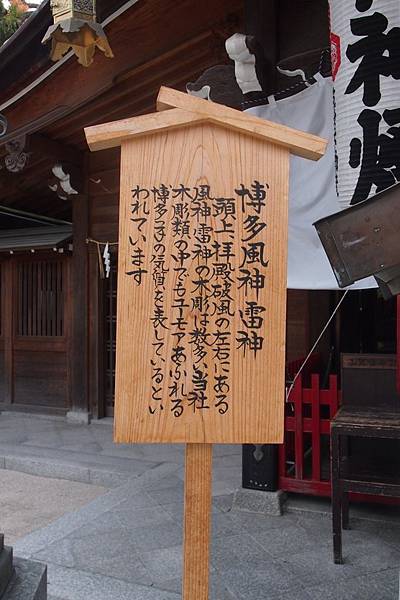 博多風神雷神
頭上、拝殿破風の左右にある
風神雷神の木彫は数多い当社
木彫類の中でもユーモアあふれる
博多っ子の気質を表しているとい
われています
神燈